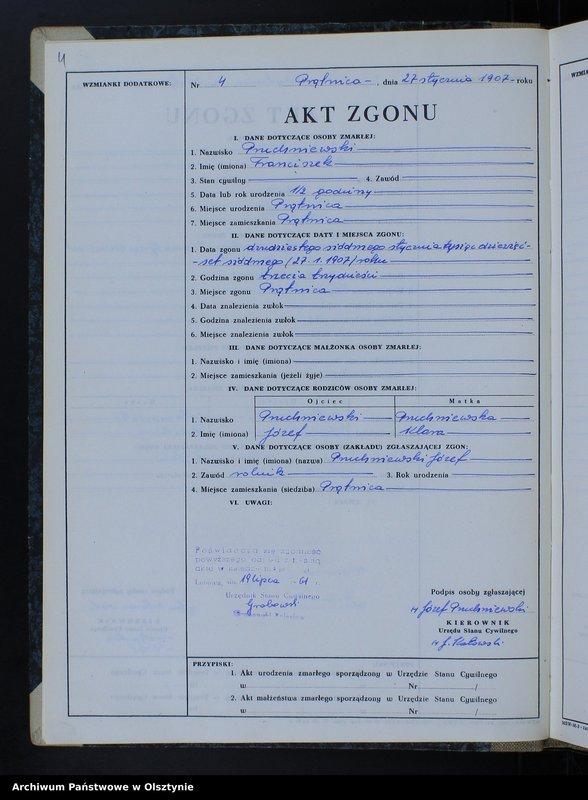 4
WZMIANKI DODATKOWE:
Nr 4 Prątnica -, dnia 27 stycznia 1907 - roku
AKT ZGONU
I. DANE DOTYCZĄCE OSOBY ZMARŁEJ:
1. Nazwisko Pruchniewski
2. Imię (imiona) Franciszek
3. Stan cywilny 4. Zawód
5. Data lub rok urodzenia 1/2 godziny
6. Miejsce urodzenia Prątnica
7. Miejsce zamieszkania Prątnica
II. DANE DOTYCZĄCE DATY I MIEJSCA ZGONU:
1. Data zgonu dwudziestego siódmego stycznia tysiąc dziewięć-
-set siódmego /27.1.1907/ roku
2. Godzina zgonu trzecia trzydzieści
3. Miejsce zgonu Prątnica
4. Data znalezienia zwłok
5. Godzina znalezienia zwłok
6. Miejsce znalezienia zwłok
III. DANE DOTYCZĄCE MAŁŻONKA OSOBY ZMARŁEJ:
1. Nazwisko i imię (imiona)
2. Miejsce zamieszkania (jeżeli żyje)
IV. DANE DOTYCZĄCE RODZICÓW OSOBY ZMARŁEJ:
Ojciec Matka
1. Nazwisko Pruchniewski Pruchniewska
2. Imię (imiona) Józef Klara
V. DANE DOTYCZĄCE OSOBY (ZAKŁADU) ZGŁASZAJĄCEJ ZGON:
1. Nazwisko i imię (imiona) (nazwa) Pruchniewski Józef
2. Zawód rolnik 3. Rok urodzenia
4. Miejsce zamieszkania (siedziba) Prątnica
VI. UWAGI:
Poświadcza się zgodność
powyższego odpisu z treścią
19 lipca 61 r.
Urzędnik Stanu Cywilnego
Grabowski
Podpis osoby zgłaszającej
Józef Pruchniewski
KIEROWNIK
Urzędu Stanu Cywilnego
PRZYPISKI:
1. Akt urodzenia zmarłego sporządzony w Urzędzie Stanu Cywilnego
w Nr /
2. Akt małżeństwa zmarłego sporządzony w Urzędzie Stanu Cywilnego
w Nr /
Archiwum Państwowe w Olsztynie